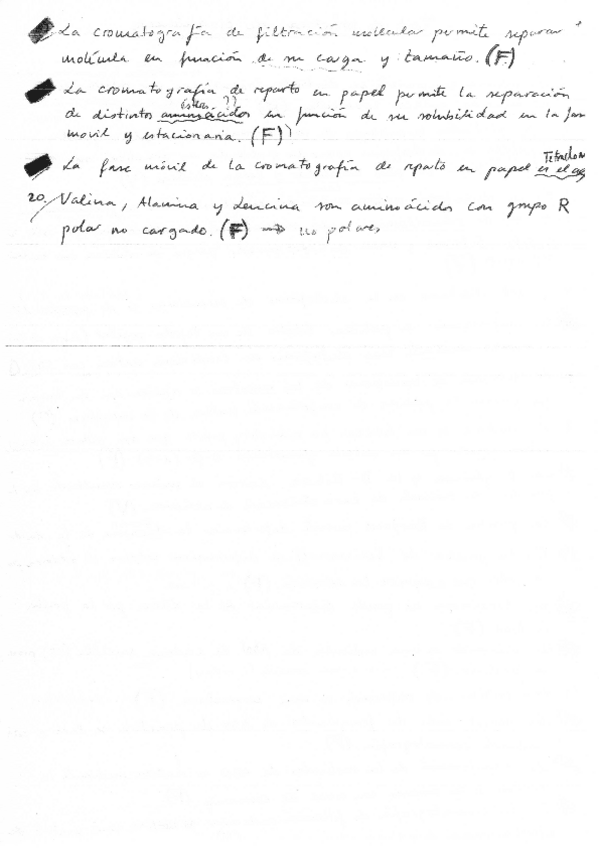 La cromatografía de filtración molecular permite separar
molécula en función de su carga y tamaño. (F)
La cromatografía de reparto en papel permite la separación
de distintos aminoácidos en función de su solubilidad en la
movil y estacionaria. (F)
La fase móvil de la cromatografía de repato en papel es el
20, Valina, Alamina y Leucina son aminoácidos con grupo R
polar no cargado. (F) → no polares